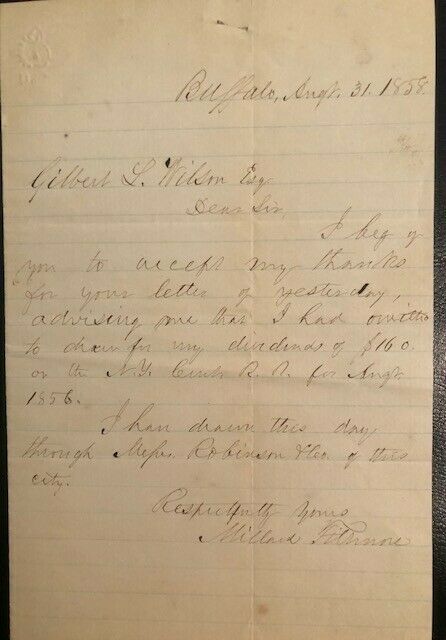 Buffalo, Augt. 31. 1858.
Gilbert L. Wilson Esq
Dear Sir,
I beg of
you to accept my thanks
for your letter of yesterday,
advising me that I had omitted
to draw for my dividends of $160.
on the N.Y. Cent. R. R. for Augt.
1856.
I have drawn this day
through Messrs. Robinson & Co. of this
city.
Respectfully Yours
Millard Fillmore